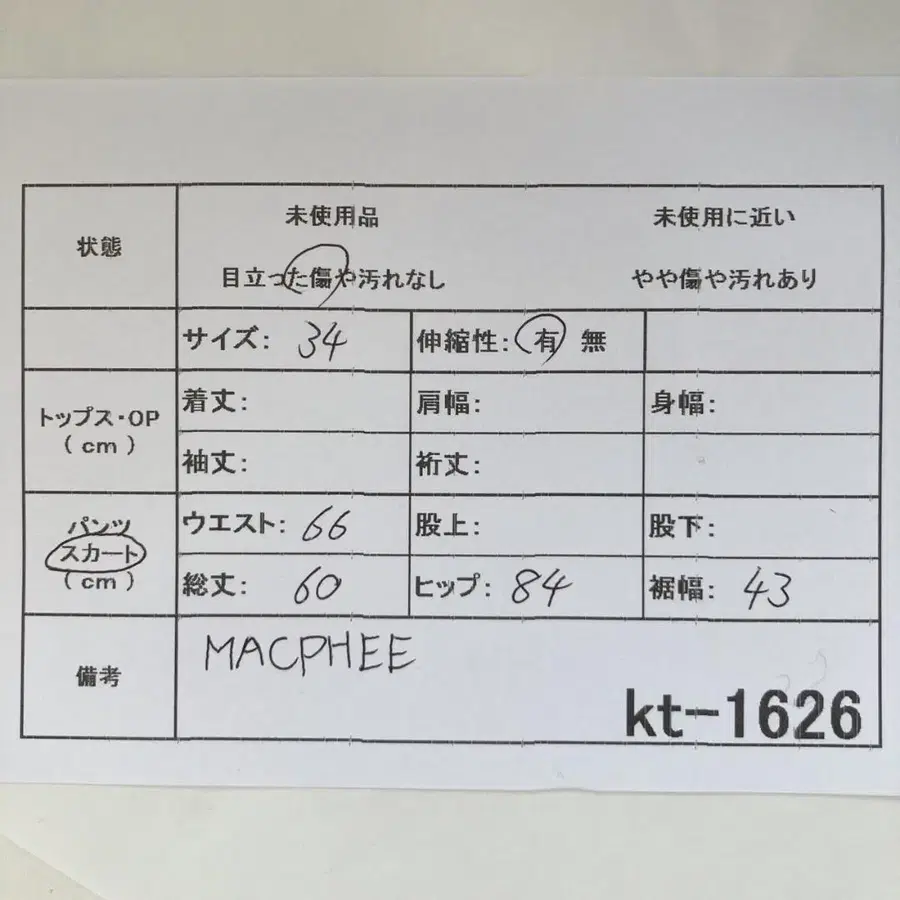 状態
未使用品 未使用に近い
目立った傷や汚れなし やや傷や汚れあり
サイズ: 34 伸縮性: 有 無
トップス・OP
( cm )
着丈: 肩幅: 身幅:
袖丈: 裄丈:
パンツ
スカート
( cm )
ウエスト: 66 股上: 股下:
総丈: 60 ヒップ: 84 裾幅: 43
備考
MACPHEE
kt-1626